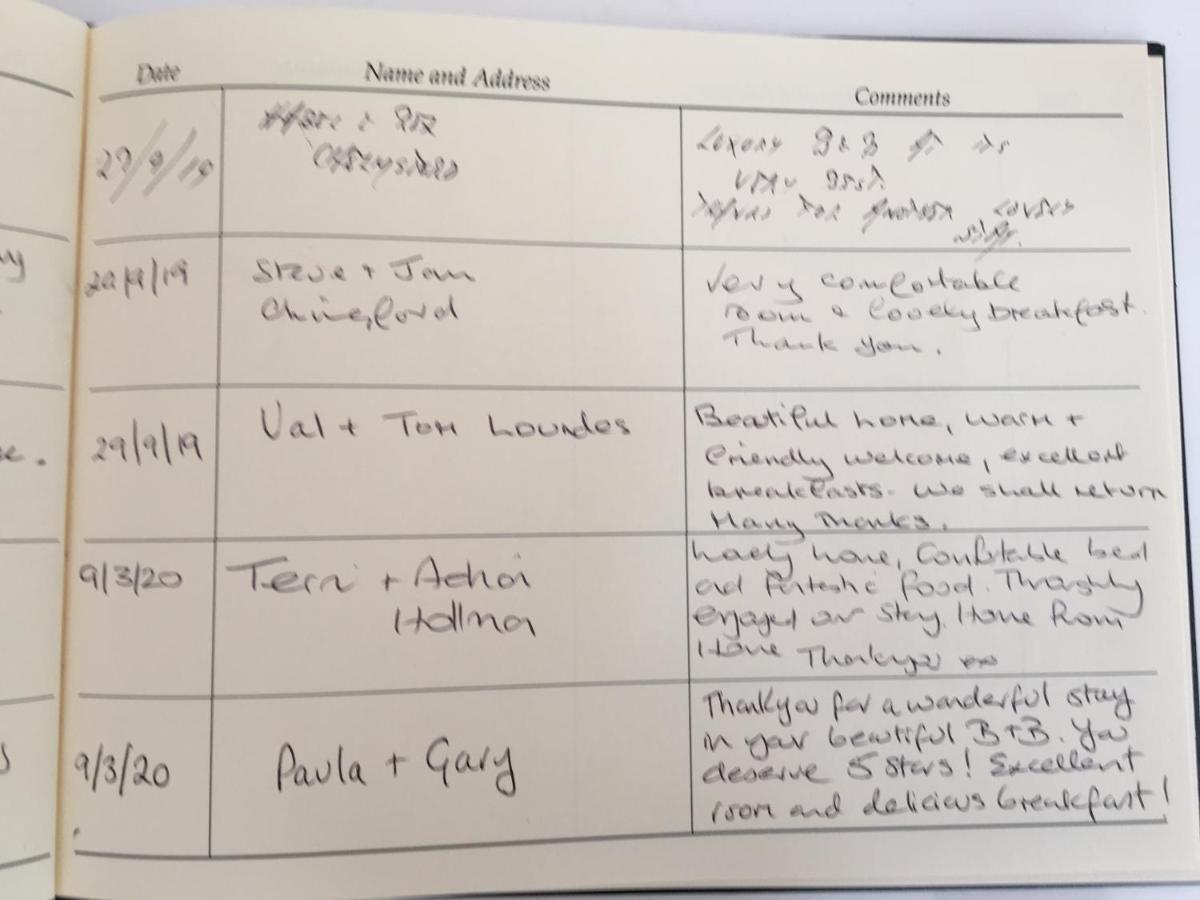 Date Name and Address Comments
LUXURY B & B
VERY BEST
Steve + Jan
Chingford
Very comfortable
room & lovely breakfast.
Thank you.
29/9/19
Val + Tom Lourdes
Beautiful home, warm +
friendly welcome, excellent
breakfasts. We shall return
Many Thanks.
9/3/20
Terri +
Lovely home, Comfortable bed
and Fantastic food. Thoroughly
enjoyed our stay. Home from
Home Thankyou xx
9/3/20
Paula + Gary
Thankyou for a wonderful stay
in your beautiful B+B. You
deserve 5 stars! Excellent
room and delicious breakfast!